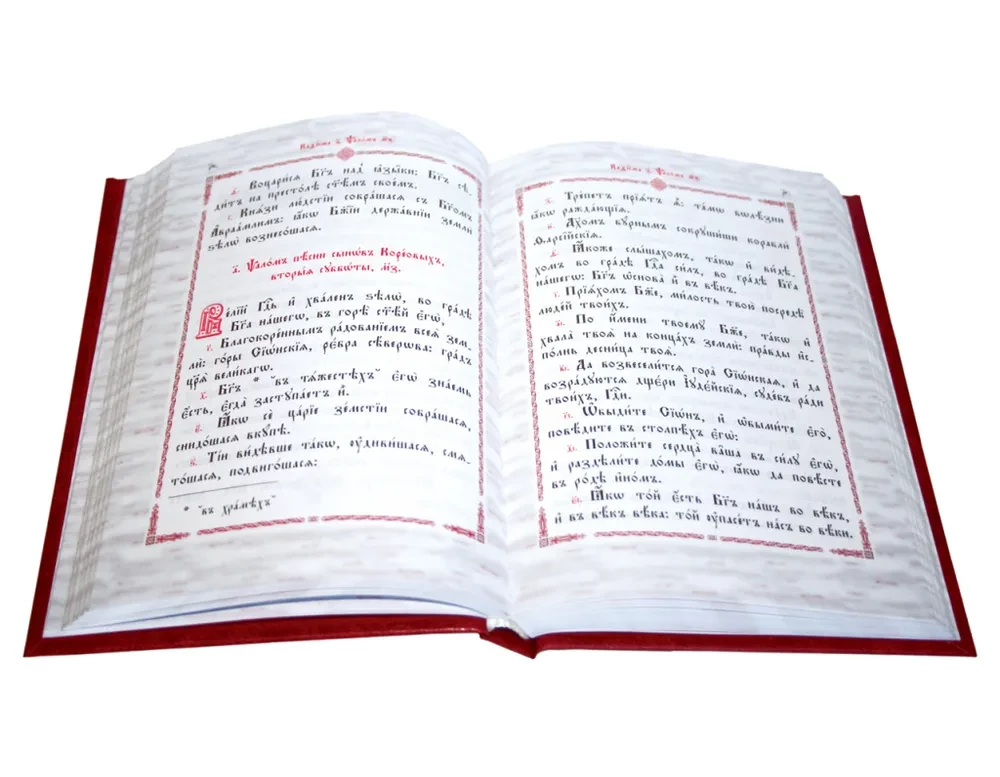 Каѳі́сма ѕ҃. Ѱало́мъ мз҃.
д҃. Воцари́сѧ Бг҃ъ над̾ ꙗ҆зы́ки: Бг҃ъ сѣ-
ди́тъ на престо́лѣ ст҃ѣ́мъ свое́мъ.
Кнѧ̑зи лю́дстїи собра́шасѧ съ Бг҃омъ
А҆враа́млимъ: ꙗ҆́кѡ Бж҃їи держа́внїи землѝ
ѕѣлѡ̀ вознесо́шасѧ.
Ѱало́мъ пѣ́сни сынѡ́въ Коре́овыхъ,
вторы́ѧ сꙋббѡ́ты, мз҃.
Ве́лїй Гд҇ь и҆ хва́ленъ ѕѣлѡ̀, во гра́дѣ
Бг҃а на́шегѡ, въ горѣ̀ ст҃ѣ́й є҆гѡ̀,
г҃. Благокоре́ннымъ ра́дованїемъ всеѧ̀ зем-
лѝ: го́ры Сїѡ́нскїѧ, ре́бра сѣ́верѡва: гра́дъ
цр҃ѧ̀ вели́кагѡ.
Бг҃ъ * "въ тѧ́жестехъ" є҆гѡ̀ зна́емь
є҆́сть, є҆гда̀ застꙋпа́етъ и҆̀.
Ꙗ҆́кѡ сѐ ца́рїе зе́мстїи собра́шасѧ,
снидо́шасѧ вкꙋ́пѣ.
Ті́и ви́дѣвше та́кѡ, ᲂу҆диви́шасѧ, смѧ-
то́шасѧ, подвиго́шасѧ:
* "въ хра́мѣхъ"
Каѳі́сма ѕ҃. Ѱало́мъ мз҃.
Тре́петъ прїѧ́тъ ѧ҆̀: та́мѡ болѣ̑зни
ꙗ҆́кѡ ражда́ющїѧ.
Дх҃омъ бꙋ́рнымъ сокрꙋши́ши корабли̑
Ѳарсі̑йскїѧ.
Ꙗ҆́коже слы́шахомъ, та́кѡ и҆ ви́дѣ-
хомъ во гра́дѣ Гд҇а си́лъ, во гра́дѣ Бг҃а
на́шегѡ: Бг҃ъ ѡ҆снова̀ и҆̀ въ вѣ́къ.
Прїѧ́хомъ Бж҃е, ми́лость твою̀ посредѣ̀
люде́й твои́хъ.
По и҆́мени твоемꙋ̀ Бж҃е, та́кѡ и҆
хвала̀ твоѧ̀ на конца́хъ землѝ: пра́вды и҆с-
по́лнь десни́ца твоѧ̀.
Да возвесели́тсѧ гора̀ Сїѡ́нскаѧ, и҆ да
возра́дꙋютсѧ дщє́ри І҆ꙋдє́йскїѧ, сꙋде́бъ ра́ди
твои́хъ, Гд҇и.
Ѡ҆бы́дите Сїѡ́нъ, и҆ ѡ҆быми́те є҆го̀,
повѣ́дите въ столпѣ́хъ є҆гѡ̀:
Положи́те сердца̀ ва̑ша въ си́лꙋ є҆гѡ̀,
и҆ раздѣли́те до́мы є҆гѡ̀, ꙗ҆́кѡ да повѣ́сте
въ ро́дѣ и҆́номъ.
Ꙗ҆́кѡ то́й є҆́сть Бг҃ъ на́шъ во вѣ́къ,
и҆ въ вѣ́къ вѣ́ка: то́й ᲂу҆пасе́тъ на́съ во вѣ́ки.